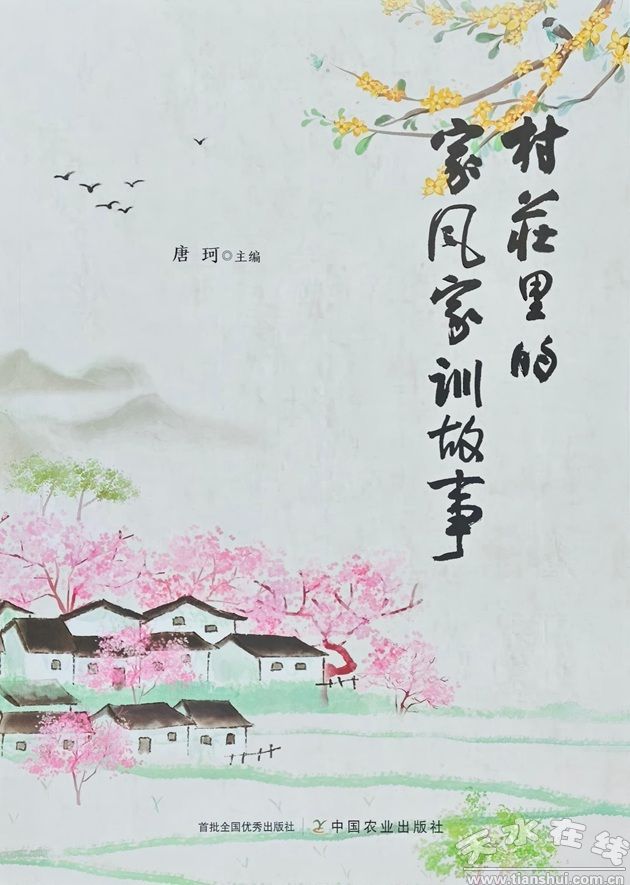 村莊里的
家风家训故事
唐 珂◎主编
首批全国优秀出版社
中国农业出版社
天水在线
www.tianshui.com.cn